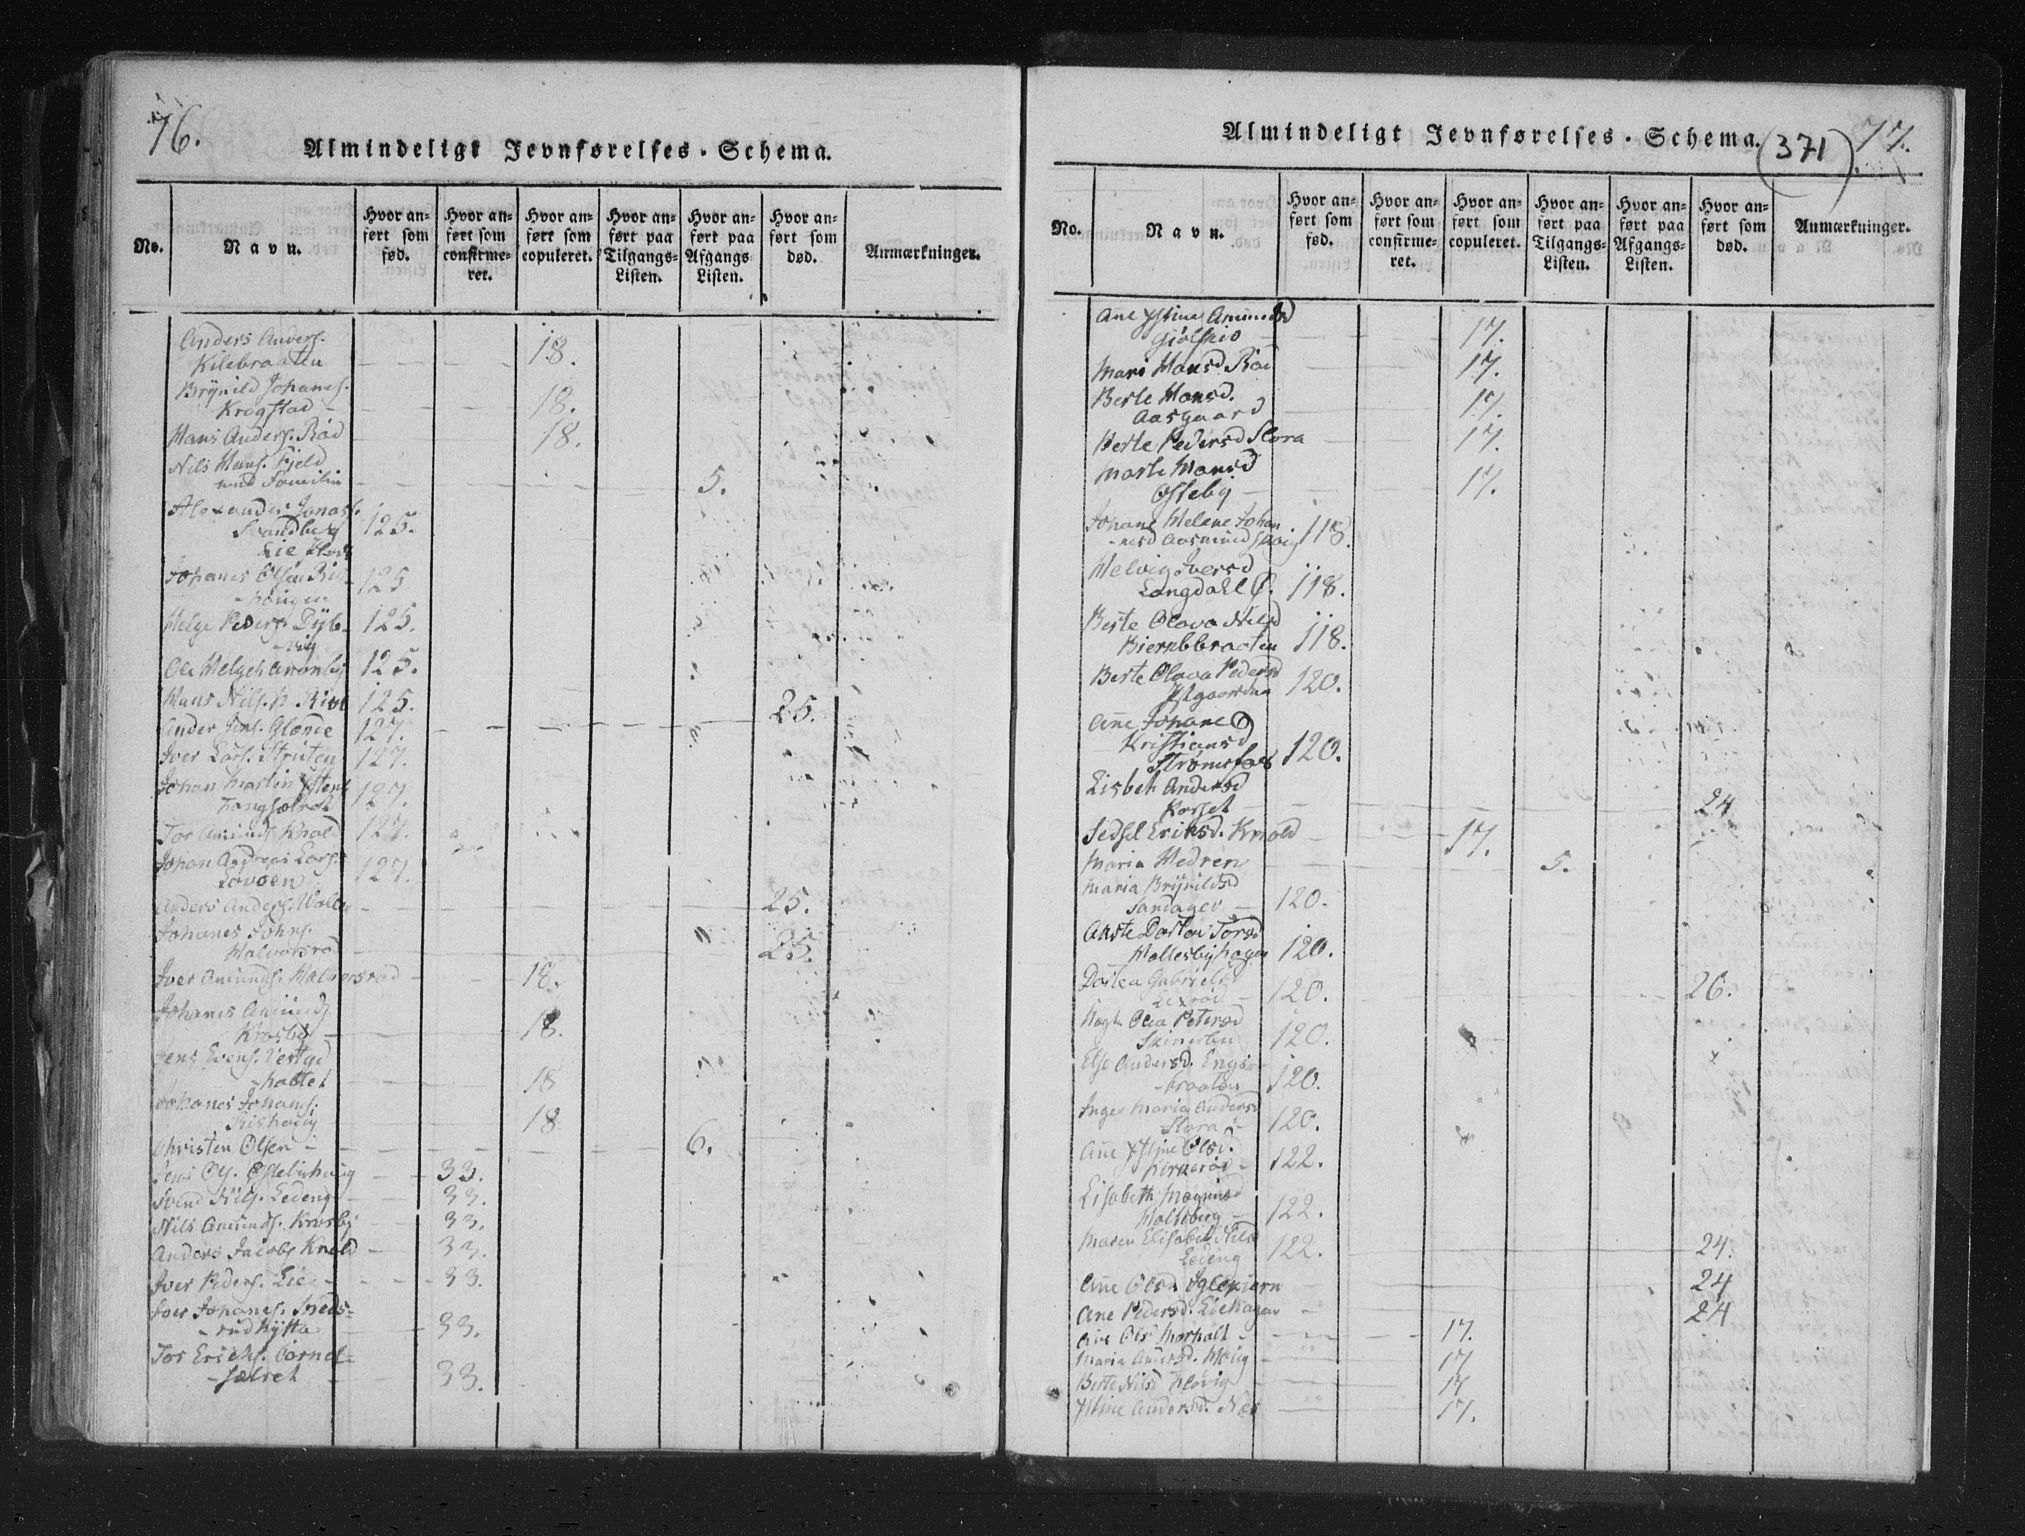 76.
Almindeligt Jevnførelses-Schema.
No.
Navn.
Hvor an-
ført som
fød.
Hvor an-
ført som
confirme-
ret.
Hvor an-
ført som
copuleret.
Hvor an-
ført paa
Tilgangs-
Listen.
Hvor an-
ført paa
Afgangs-
Listen.
Hvor an-
ført som
død.
Anmærkninger.
Anders Anders.
Kilebraaten 18.
Brynild Johanes.
Krogstad 18.
Hans Anders. Rød 18.
Nils Hans. Fjeld
med Familie 5.
Alexander Jonas.
Strandberg 125.
Lie
Johanes Olsen 125
Helge Peders. Dyb- 125.
-vig
Ole Helges. 125.
Hans Nils. 125. 25.
Ander Jens. Glenne 127.
Iver Lars. Struten 127.
Johan Martin
127.
Tor Amunds. Knold 127.
Johan Andreas Lars.
127.
Anders Anders. 25.
Johanes Johns.
Halvorsrød 25.
Iver Amunds. Halvorsrød 18.
Johanes Amunds.
Krosby 18.
Jens Evens. Vestgd
18
Johanes Johans.
18
Christen Olsen 6.
Jens Ols. Østebyhaug 33.
Svend Nils. Ledeng 33.
Nils Amunds. Krosby 33.
Anders Jacobs. Knold 33.
Iver Peders. Lie 33.
Iver Johanes. Sneds-
-rud Hytta 33.
Tor Erichs. Cornel-
-sælret 33.
Almindeligt Jevnførelses-Schema.
(371)
77.
No.
Navn.
Hvor an-
ført som
fød.
Hvor an-
ført som
confirme-
ret.
Hvor an-
ført som
copuleret.
Hvor an-
ført paa
Tilgangs-
Listen.
Hvor an-
ført paa
Afgangs-
Listen.
Hvor an-
ført som
død.
Anmærkninger.
Ane Xstine Amundsd
Giølsiø 17.
Mari Hansd Rød 17.
Berte Hansd.
Aasgaard 17.
Berte Pedersd Slora 17.
Marte Hansd
Østeby 17.
Johane Helene Johan
-nesd 118.
Helvig Iversd
Langdahl 118.
Berte Olava Nilsd
Biernebbraaten 118.
Berte Olava Pedersd
120.
Ane Johane
Kristiansd
Strømsfos 120.
Lisbeth Andersd
Korset 24
Sidsel Eriksd. Knold 17.
Maria Hedren 5.
Maria Brynildsd
Sandager 120.
Dortea Torsd
Hallesbyhagen 120.
Dortea Gabrielsd
120. 26.
Olea Petersd
120.
Else Andersd. Engs-
-braaten 120.
Inger Maria Andersd
Slora 120.
Ane Xstine Olsd.
Kirkerød 122.
Lisabeth Magnusd
122.
Maren Elisabet Nilsd
Ledeng 122. 24.
Ane Olsd Iglekiern 24
Ane Pedersd. Liehagen 24
Ane Olsd 17.
Maria Andersd. Houg 17
Berte Nilsd 17
Xstine Andersd. Næs 17.